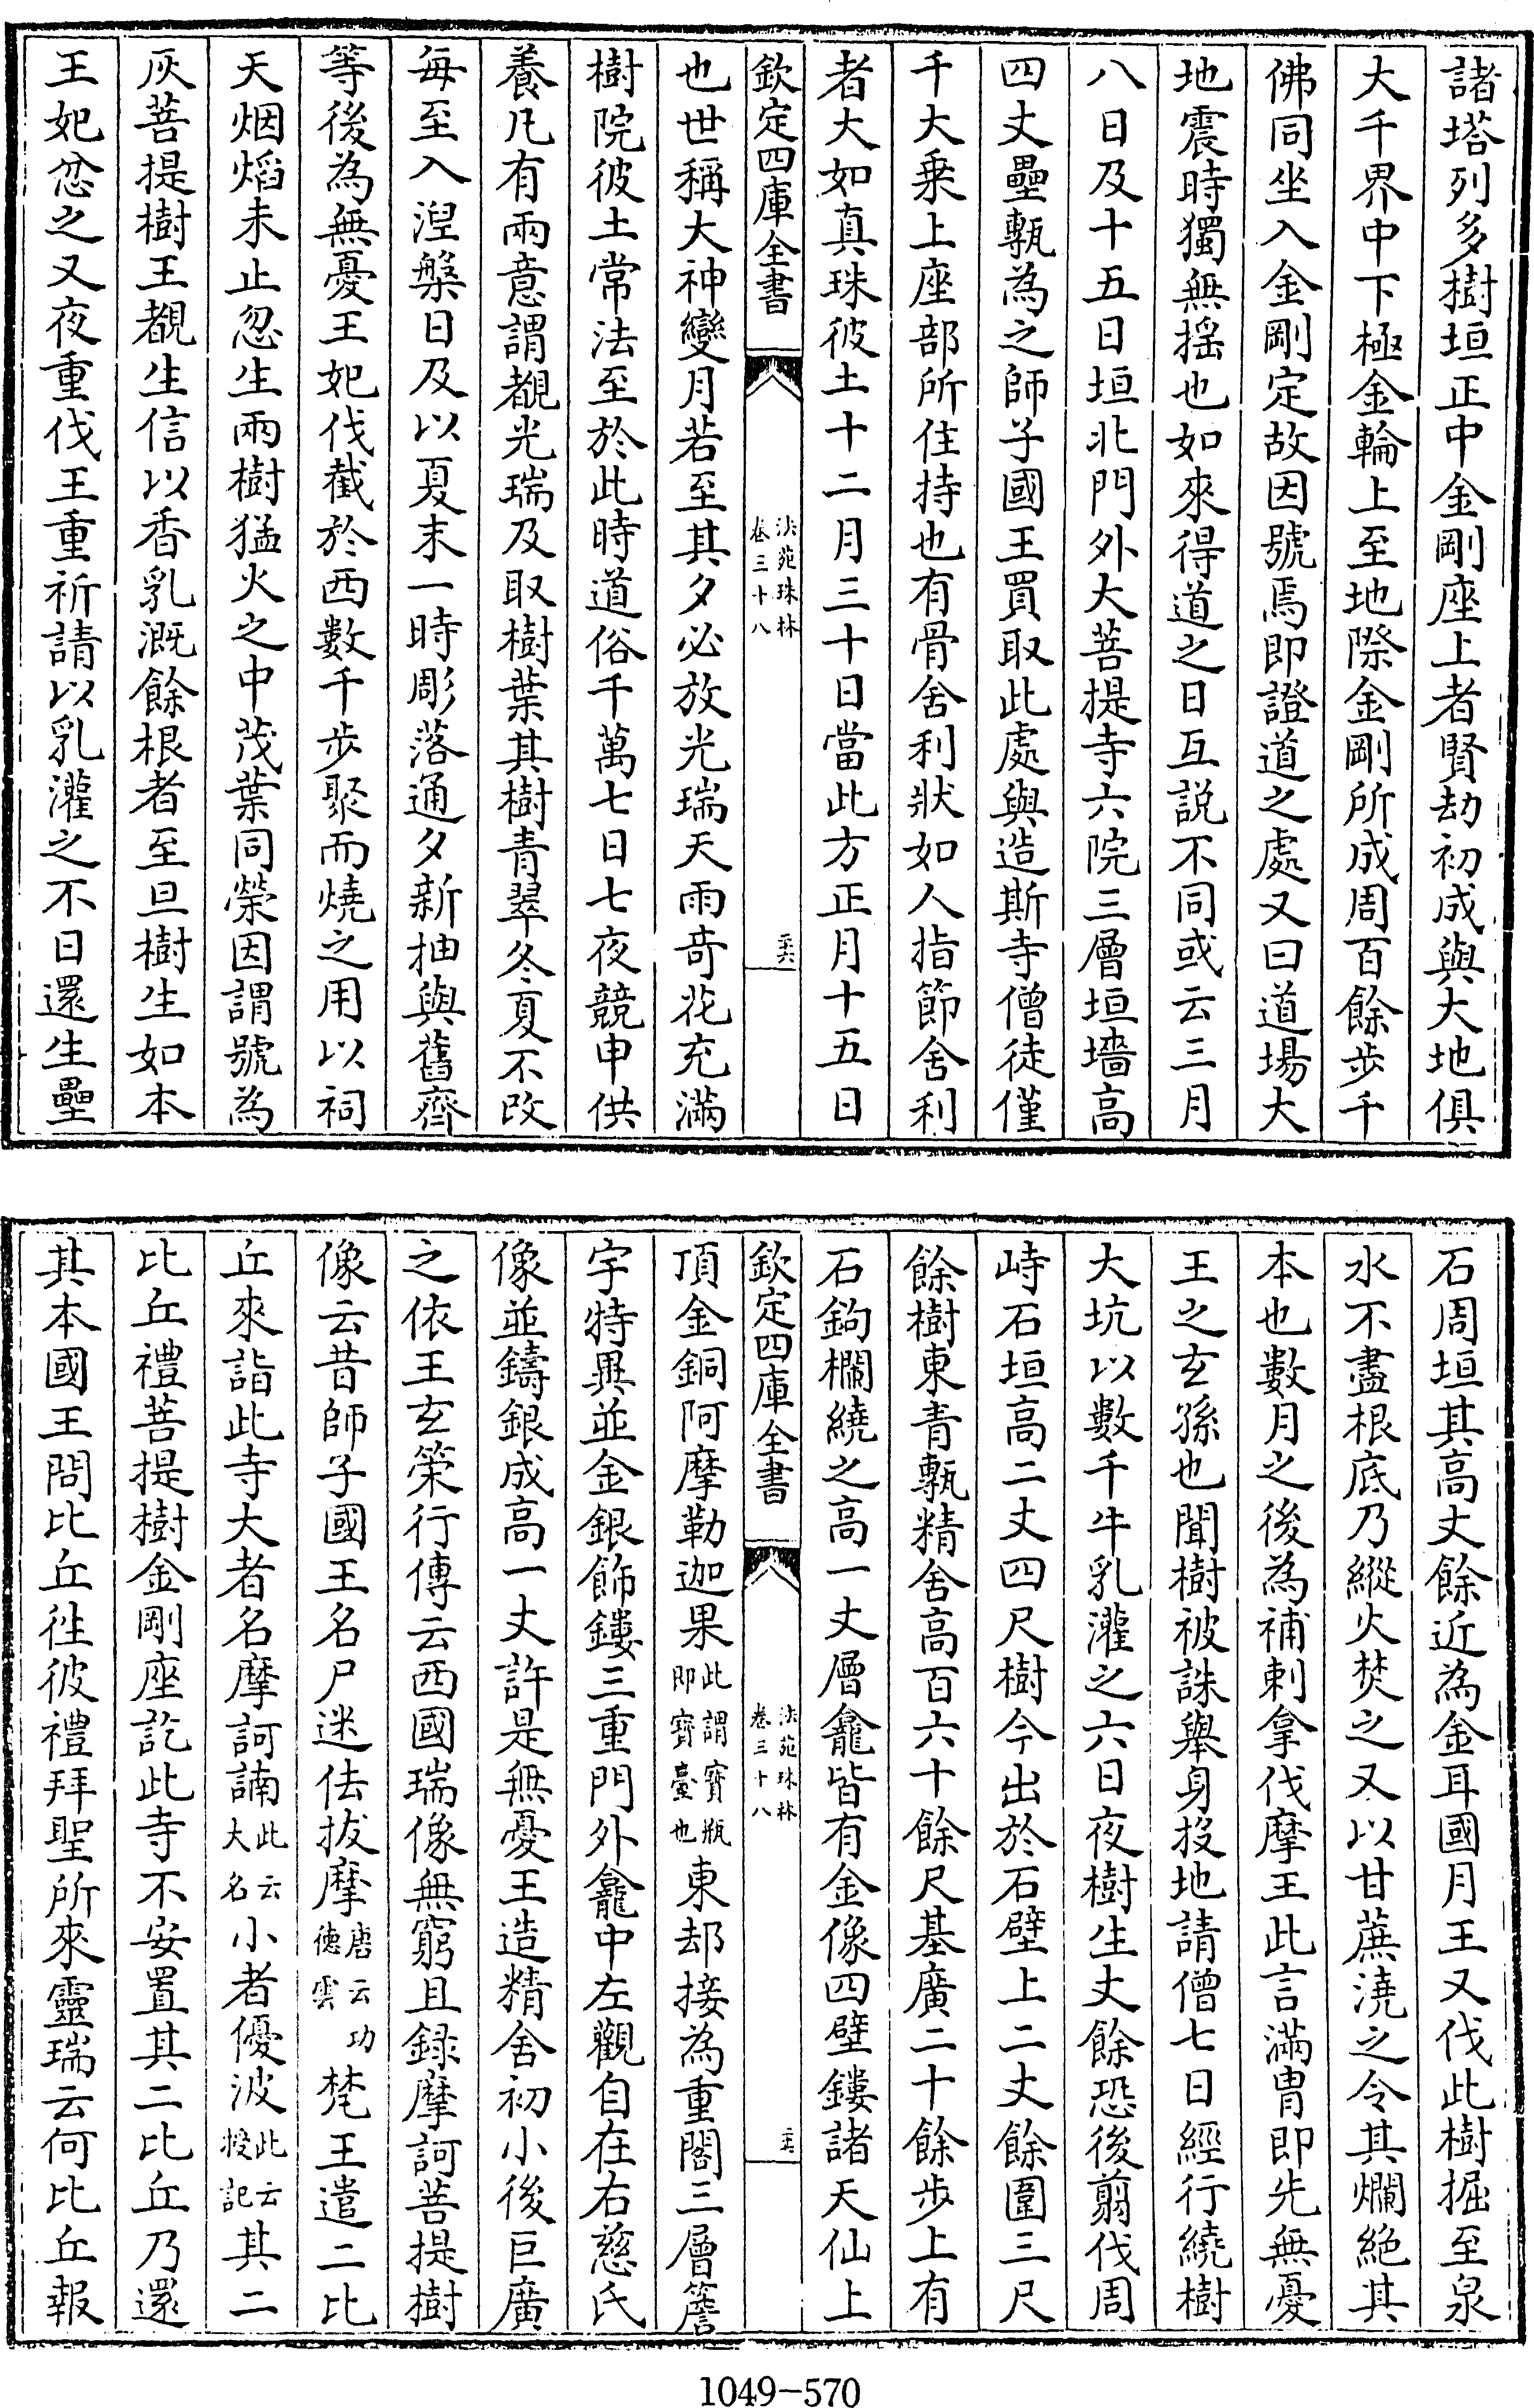 諸塔列多樹垣正中金剛座上者賢劫初成與大地俱
大千界中下極金輪上至地際金剛所成周百餘步千
佛同坐入金剛定故因號焉即證道之處又曰道場大
地震時獨無揺也如來得道之日互説不同或云三月
八日及十五日垣北門外大菩提寺六院三層垣墻高
四丈壘甎為之師子國王買取此處與造斯寺僧徒僅
千大乗上座部所住持也有骨舍利狀如人指節舍利
者大如真珠彼土十二月三十日當此方正月十五日
欽定四庫全書
法苑珠林
卷三十八
二六
也世稱大神變月若至其夕必放光瑞天雨奇花充滿
樹院彼土常法至於此時道俗千萬七日七夜競申供
養凡有兩意謂覩光瑞及取樹葉其樹青翠冬夏不改
每至入涅槃日及以夏末一時彫落通夕新抽與舊齊
等後為無憂王妃伐截於西數千步聚而燒之用以祠
天烟熖未止忽生兩樹猛火之中茂葉同榮因謂號為
灰菩提樹王覩生信以香乳溉餘根者至旦樹生如本
王妃忿之又夜重伐王重祈請以乳灌之不日還生壘
石周垣其高丈餘近為金耳國月王又伐此樹掘至泉
水不盡根底乃縱火焚之又以甘蔗澆之令其爛絶其
本也數月之後為補剌拿伐摩王此言滿胄即先無憂
王之玄孫也聞樹被誅舉身投地請僧七日經行繞樹
大坑以數千牛乳灌之六日夜樹生丈餘恐後翦伐周
峙石垣高二丈四尺樹今出於石壁上二丈餘圍三尺
餘樹東青甎精舍高百六十餘尺基廣二十餘步上有
石鉤欄繞之高一丈層龕皆有金像四壁鏤諸天仙上
欽定四庫全書
法苑珠林
卷三十八
二七
頂金銅阿摩勒迦果此謂寶瓶即寶臺也東却接為重閣三層簷
宇特異並金銀飾鏤三重門外龕中左觀自在右慈氏
像並鑄銀成高一丈許是無憂王造精舍初小後巨廣
之依王玄策行傳云西國瑞像無窮且録摩訶菩提樹
像云昔師子國王名尸迷佉拔摩唐云功德雲梵王遣二比
丘來詣此寺大者名摩訶諵此云大名小者優波此云授記其二
比丘禮菩提樹金剛座訖此寺不安置其二比丘乃還
其本國王問比丘徃彼禮拜聖所來靈瑞云何比丘報
1049-570